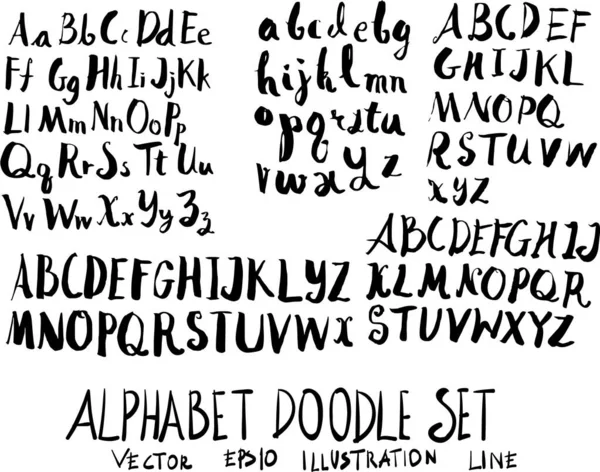 Aa Bb Cc Dd Ee
Ff Gg Hh Ii Jj Kk
Ll Mm Nn Oo Pp
Qq Rr Ss Tt Uu
Vv Ww Xx Yy Zz
a b c d e b g
h i j k l m n
o p q r s t u
v w x y z
A B C D E F
G H I J K L
M N O P Q
R S T U V W
X Y Z
A B C D E F G H I J K L Y Z
M N O P Q R S T U V W X
A B C D E F G H I J
K L M N O P Q R
S T U V W X Y Z
ALPHABET DOODLE SET
VECTOR EPS10 ILLUSTRATION LINE